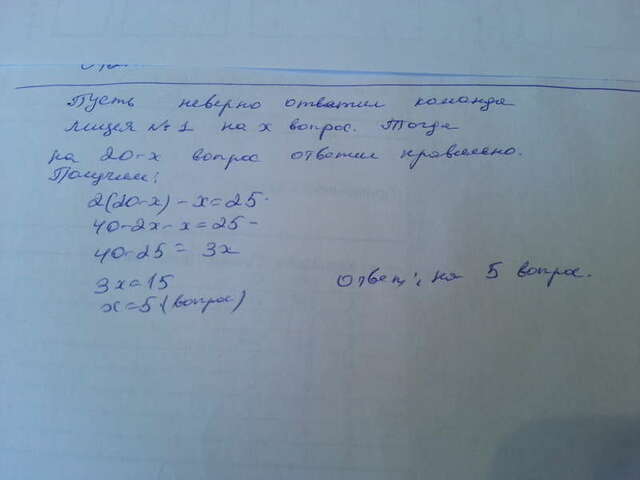 Пусть неверно ответил команда
лицея № 1 на х вопрос. Тогда
на 20-х вопрос ответил правильно.
Получим:
2(20-х) - х = 25
40-2х-х = 25
40-25 = 3х
3х = 15
х = 5 (вопрос)
Ответ: на 5 вопрос.